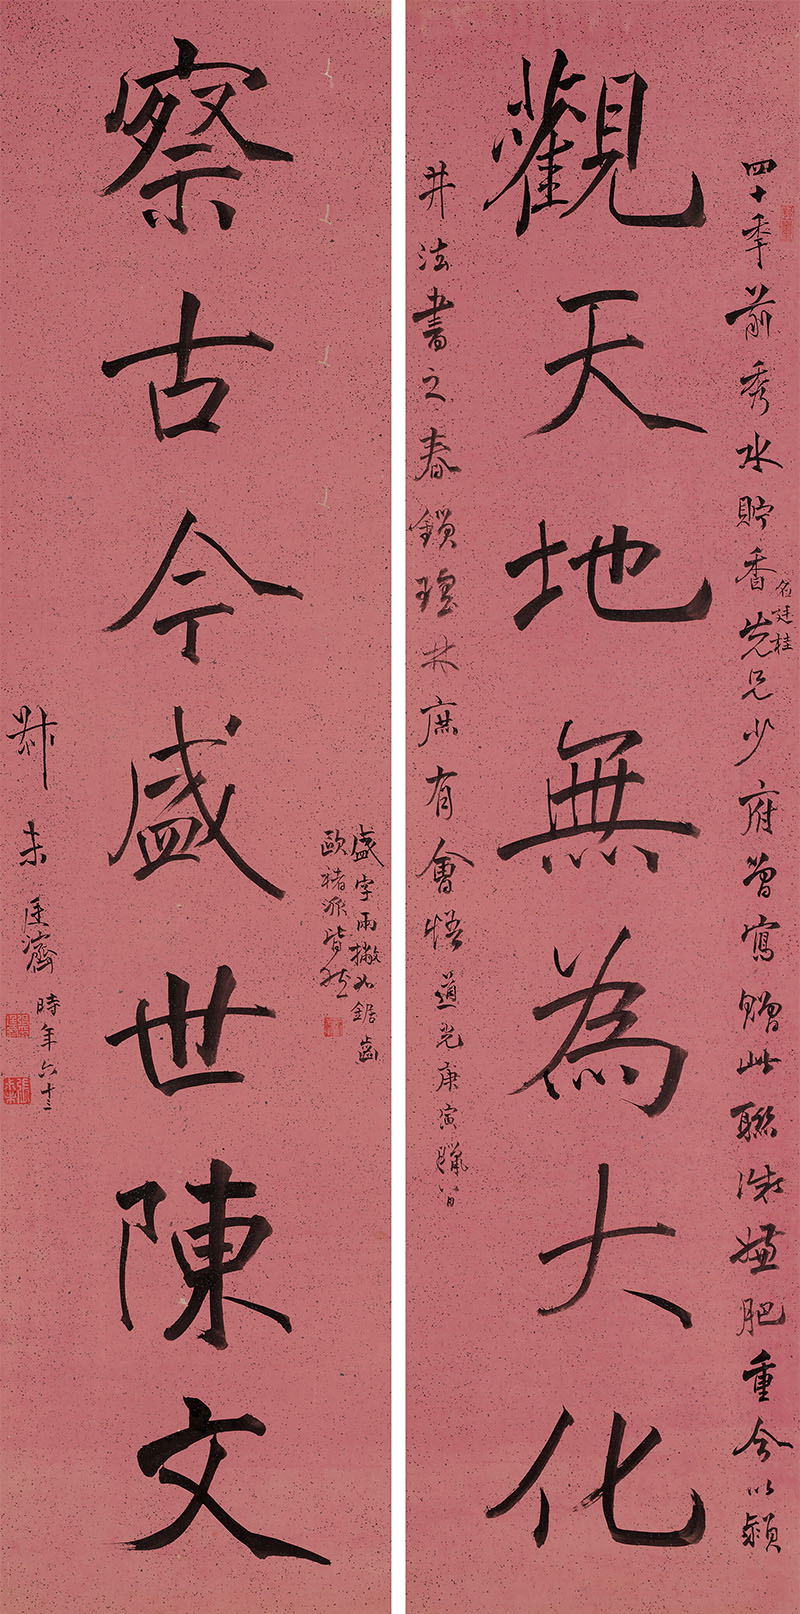 四十季前秀水貯香先兄少府曾寫贈此聯嫌肥重今以潁
名廷桂
觀天地無為大化
井法書之春鎖瓊林庶有會悟道光庚寅臘
盛字兩撇如鋸齒
歐褚派皆然
察古今盛世陳文
叔未廷濟時年六十三